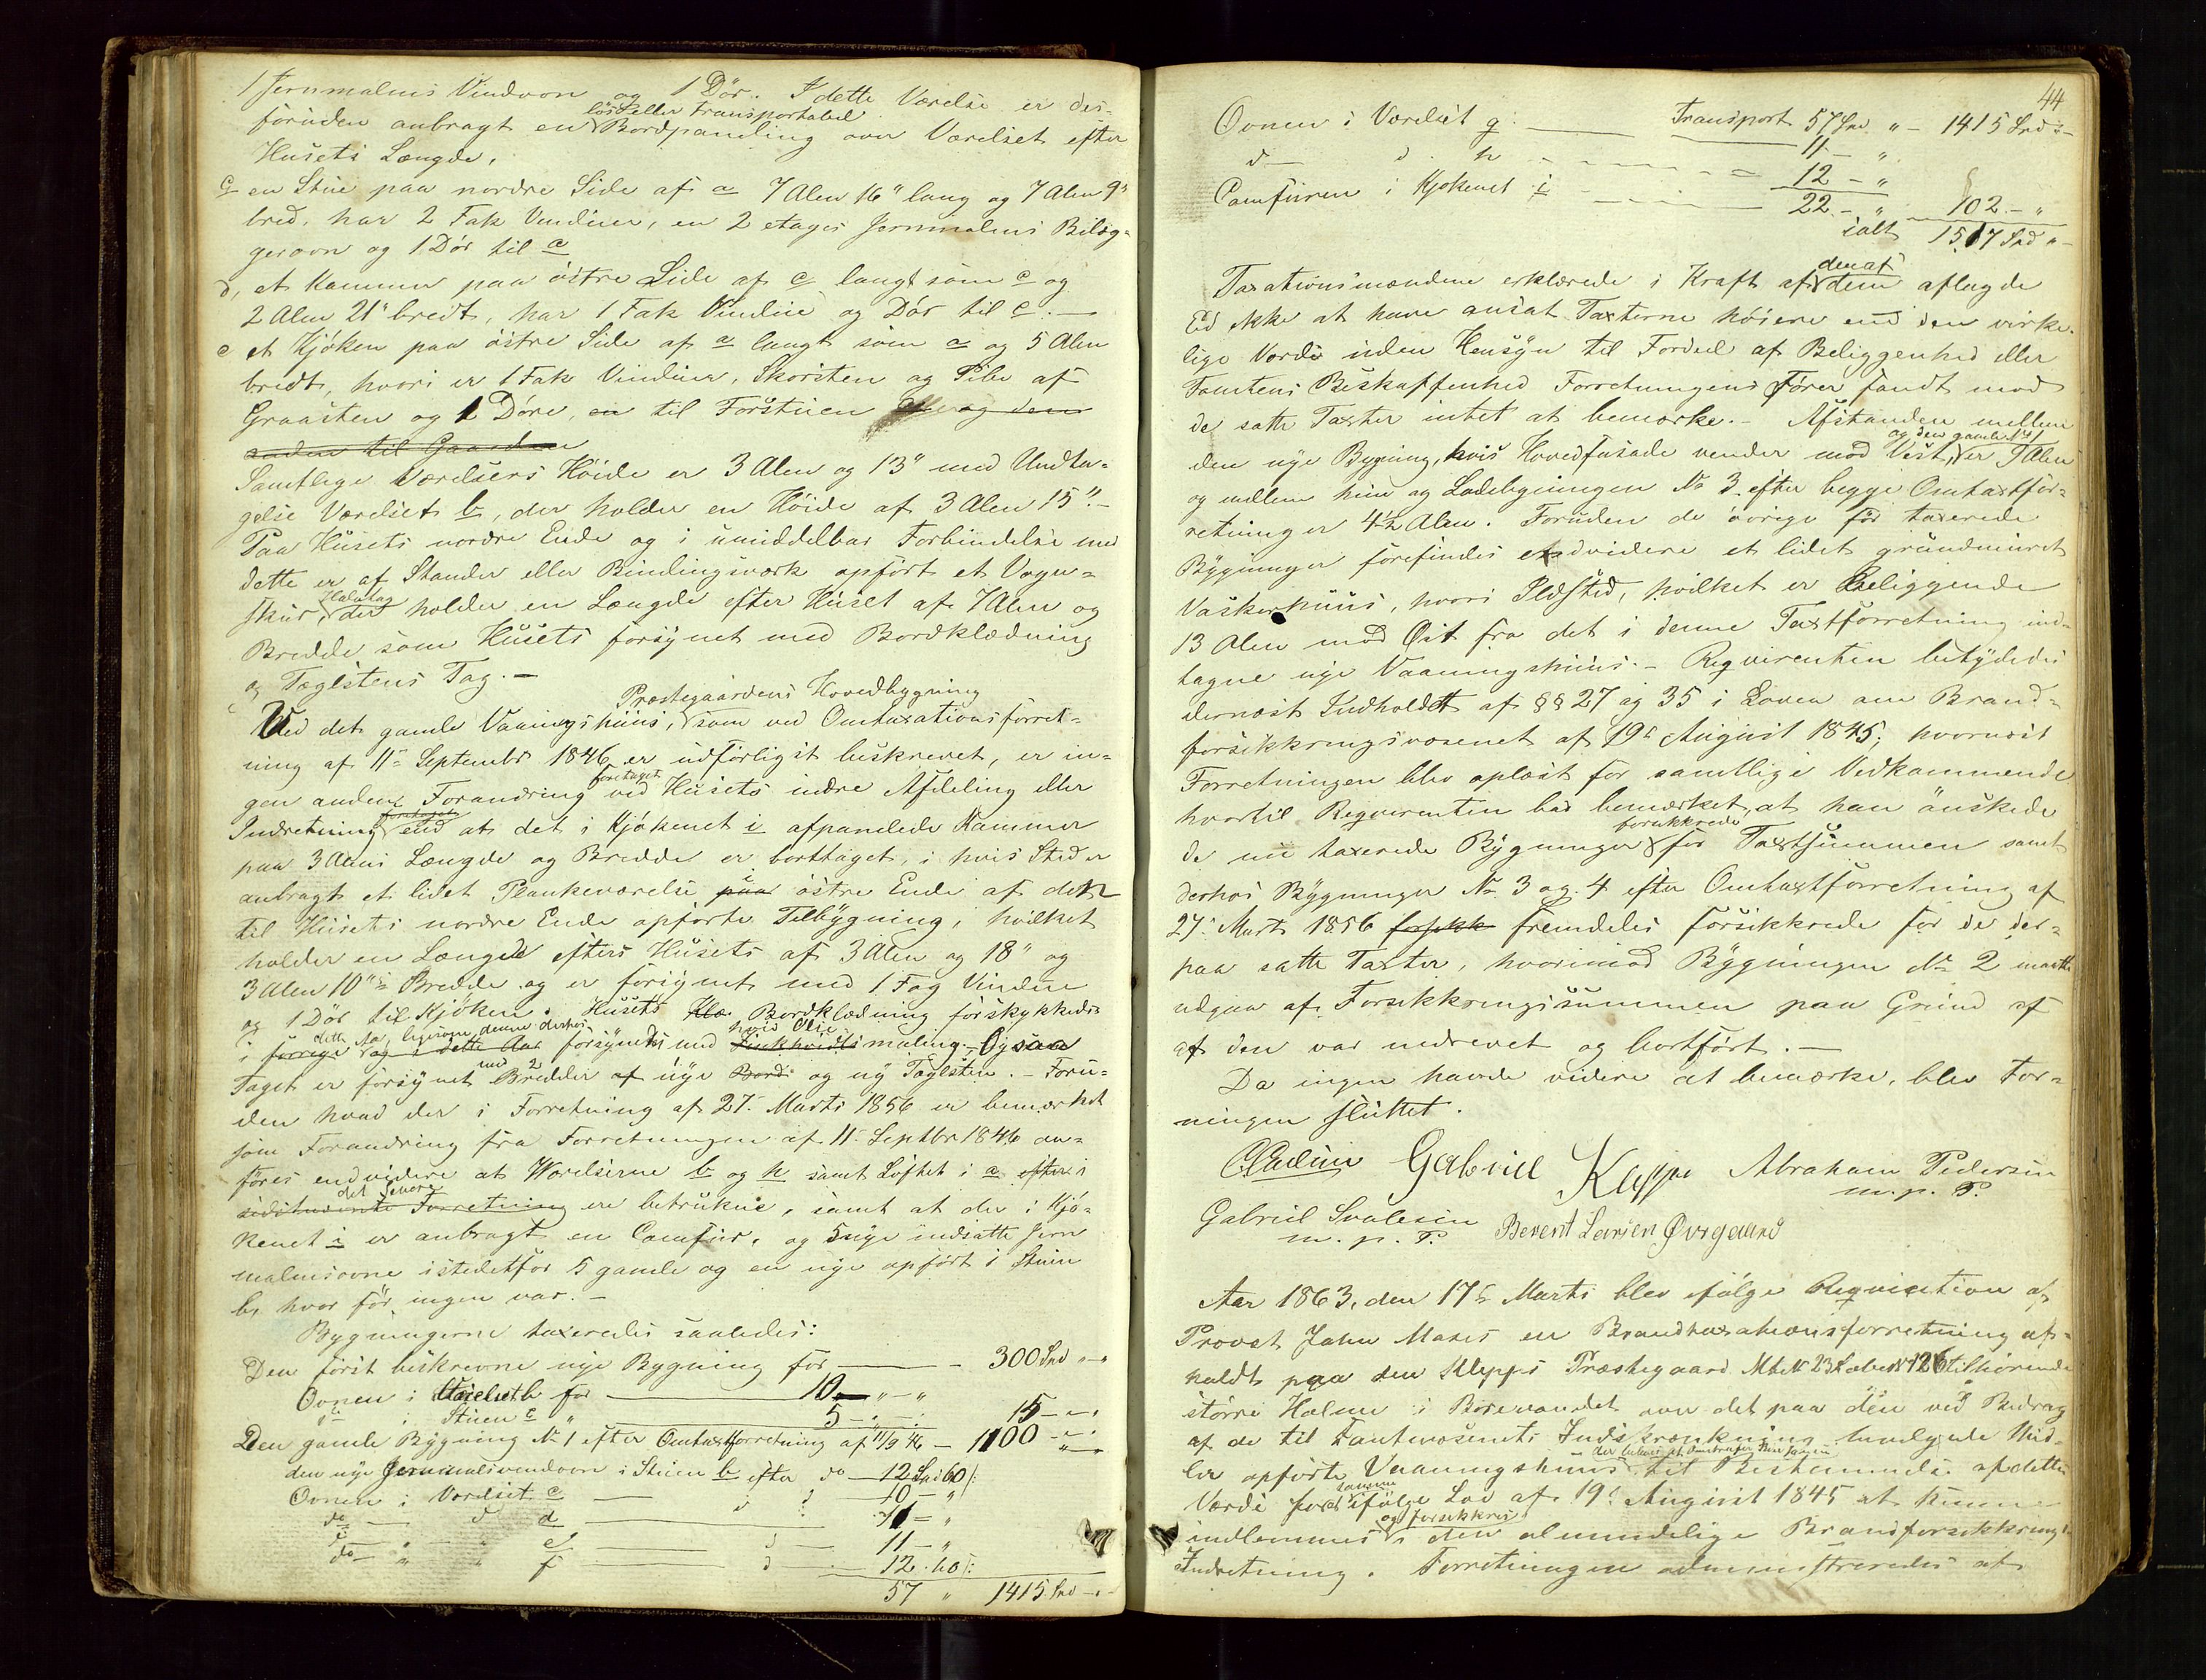 1 Jernmalms Vindovn og 1 Dör. I dette Værelse er des-
foruden anbragt en Bordpanling over Værelset efter
lös eller transportabel
Husets Længde.
c en Stue paa nordre Side af a 7 Alen 16" lang og 7 Alen 9"
bred, har 2 Fak Vinduer, en 2 etages Jernmalms Bilæg-
gerovn og 1 Dör til a
d, et Kammer paa östre Side af c langt som c og
2 Alen 21" bredt, har 1 Fak Vindue og Dör til c. —
e et Kjöken paa östre Side af a langt som a og 5 Alen
bredt, hvori er 1 Fak Vinduer, Skorsten og Pibe af
Graasten og 1 Döre, en til Forstuen og den
anden til Gaarden
Samtlige Værelsers Höide er 3 Alen og 13" med Undta-
gelse Værelset b, der holder en Höide af 3 Alen 15". —
Paa Husets nordre Ende og i umiddelbar Forbindelse med
dette er af Stander eller Bindingsværk opfört et Vogn-
skur, der holder en Længde efter Huset af 7 Alen og
Halvtag
Bredde som Husets forsynet med Bordklædning
og Taglstens Tag. —
Præstegaardens Hovedbygning
Ved det gamle Vaaningshuus, som ved Omtaxationsforret-
ning af 11te September 1846 er udförligst beskrevet, er in-
gen anden Forandring ved Husets indre Afdeling eller
foretaget
Indretning end at det i Kjökenet i afpanlede Kammer
paa 3 Alens Længde og Bredde er borttaget, i hvis Sted er
anbragt et lidet Plankeværelse paa i östre Ende af den
til Husets nordre Ende opförte Tilbygning, hvilket
holder en Længde efter Husets af 3 Alen og 18" og
3 Alen 10" i Bredde og er forsynet med 1 Fag Vindue
og 1 Dör til Kjöken. Husets Klæ Bordklædning forskykkedes
dette Aar, ligesom denne derhos hvid Olie
i forrige og i dette Aar forsynedes med Zinkhvidts maling. Ogsaa
Taget er forsynet med 2 Bredder af nye Bord og ny Taglsten. — Foru-
den hvad der i Forretning af 27. Marts 1856 er bemærket
som Forandring fra Forretningen af 11. Septbr 1846 an-
föres endvidere at Værelserne b og h samt Loftet i a efter
det senere
sidstnævnte Forretning ere betrukne, samt at der i Kjö-
kenet i er anbragt en Comfur, og 5 nye indsatte Jern
malmsovne istedetfor 5 gamle og en nye opfört i Stuen
b, hvor för ingen var. —
Bygningerne taxeredes saaledes:
Den först beskrevne nye Bygning for — 300 Spd " - "
Ovnen i Værelset b for — 10 — " - "
do i Stuen c " — 5 — " 15 — " -
Den gamle Bygning No 1 efter Omtaxtforretning af 11/9 46 — 1100 — " -
den nye Jernmalmsvindovn i Stuen b efter do — 12 Spd 60 ß
Ovnen i Værelset c — 10 — "
do — d d — 11 — "
do — " e — 11 — "
do — " f — 12 . 60 ß
57 " 1415 Spd - " -
44
Transport 57 Spd " - 1415 Spd " -
Ovnen i Værelset g — 11 — "
d — d . h — 12 — "
Comfuren i Kjökenet i — 22 — " 102 — "
ialt 1517 Spd " -
Taxationsmændene erklærede i Kraft af dem aflagde
den af
Ed ikke at have ansat Taxterne höiere end den virke-
lige Værdi uden Hensyn til Fordeel af Beliggenhed eller
Tomtens Beskaffenhed Forretningens Förer fandt mod
de satte Taxter intet at bemærke. — Afstanden mellem
og den gamle No 1
den nye Bygning, hvis Hovedfasade vender mod Vest, er 9 Alen
og mellem hin og Ladebygningen No 3 efter begge Omtaxtfor-
retninger 4½ Alen. Foruden de övrige för taxerede
Bygninger forefindes endvidere et lidet grundmuret
Vaskerhuus, hvori Ildsted, hvilket er Beliggende
13 Alen mod Öst fra det i denne Taxtforretning ind-
tagne nye Vaaningshuus. — Reqvirenten betydedes
dernæst Indholdet af §§ 27 og 35 i Loven om Brand-
forsikkringsvæsenet af 19de August 1845; hvornæst
Forretningen blev oplæst for samtlige Vedkommende
hvortil Reqvirenten bad bemærket, at han önskede
forsikkrede
de nu taxerede Bygninger for Taxtsummen samt
derhos Bygninger No 3 og 4 efter Omtaxtforretning af
27. Marts 1856 forsikk fremdeles forsikkrede for de der-
paa satte Taxter, hvorimod Bygningen No 2 maatte
udgaa af Forsikkringssummen paa Grund af
at den var nedrevet og bortfört. —
Da ingen havde videre at bemærke, blev For-
ningen sluttet.
Gabriel Kleppe Abraham Pedersen
m. p. P.
Gabriel Svalesen Berent Larsen Øvrgaard
m. p. P.
Aar 1863, den 17de Marts blev ifölge Reqvisition af
Provst Jahn Maxes en Brandtaxationsforretning af-
holdt paa den Klepps Præstegaard Mtr No 23 Löbe No 126 tilhörende
större Holme i Borevandet over det paa den ved Bidrag
af de til Fantevæsenets Indskrænkning bevilgede Mid-
ler opförte Vaaningshuus til Bestemmelse af dettes
Værdi for at ifölge Lov af 19de August 1845 at kunne
og forsikkres
indlemmes i den almindelige Brandforsikkrings
Indretning. Forretningen administreredes af